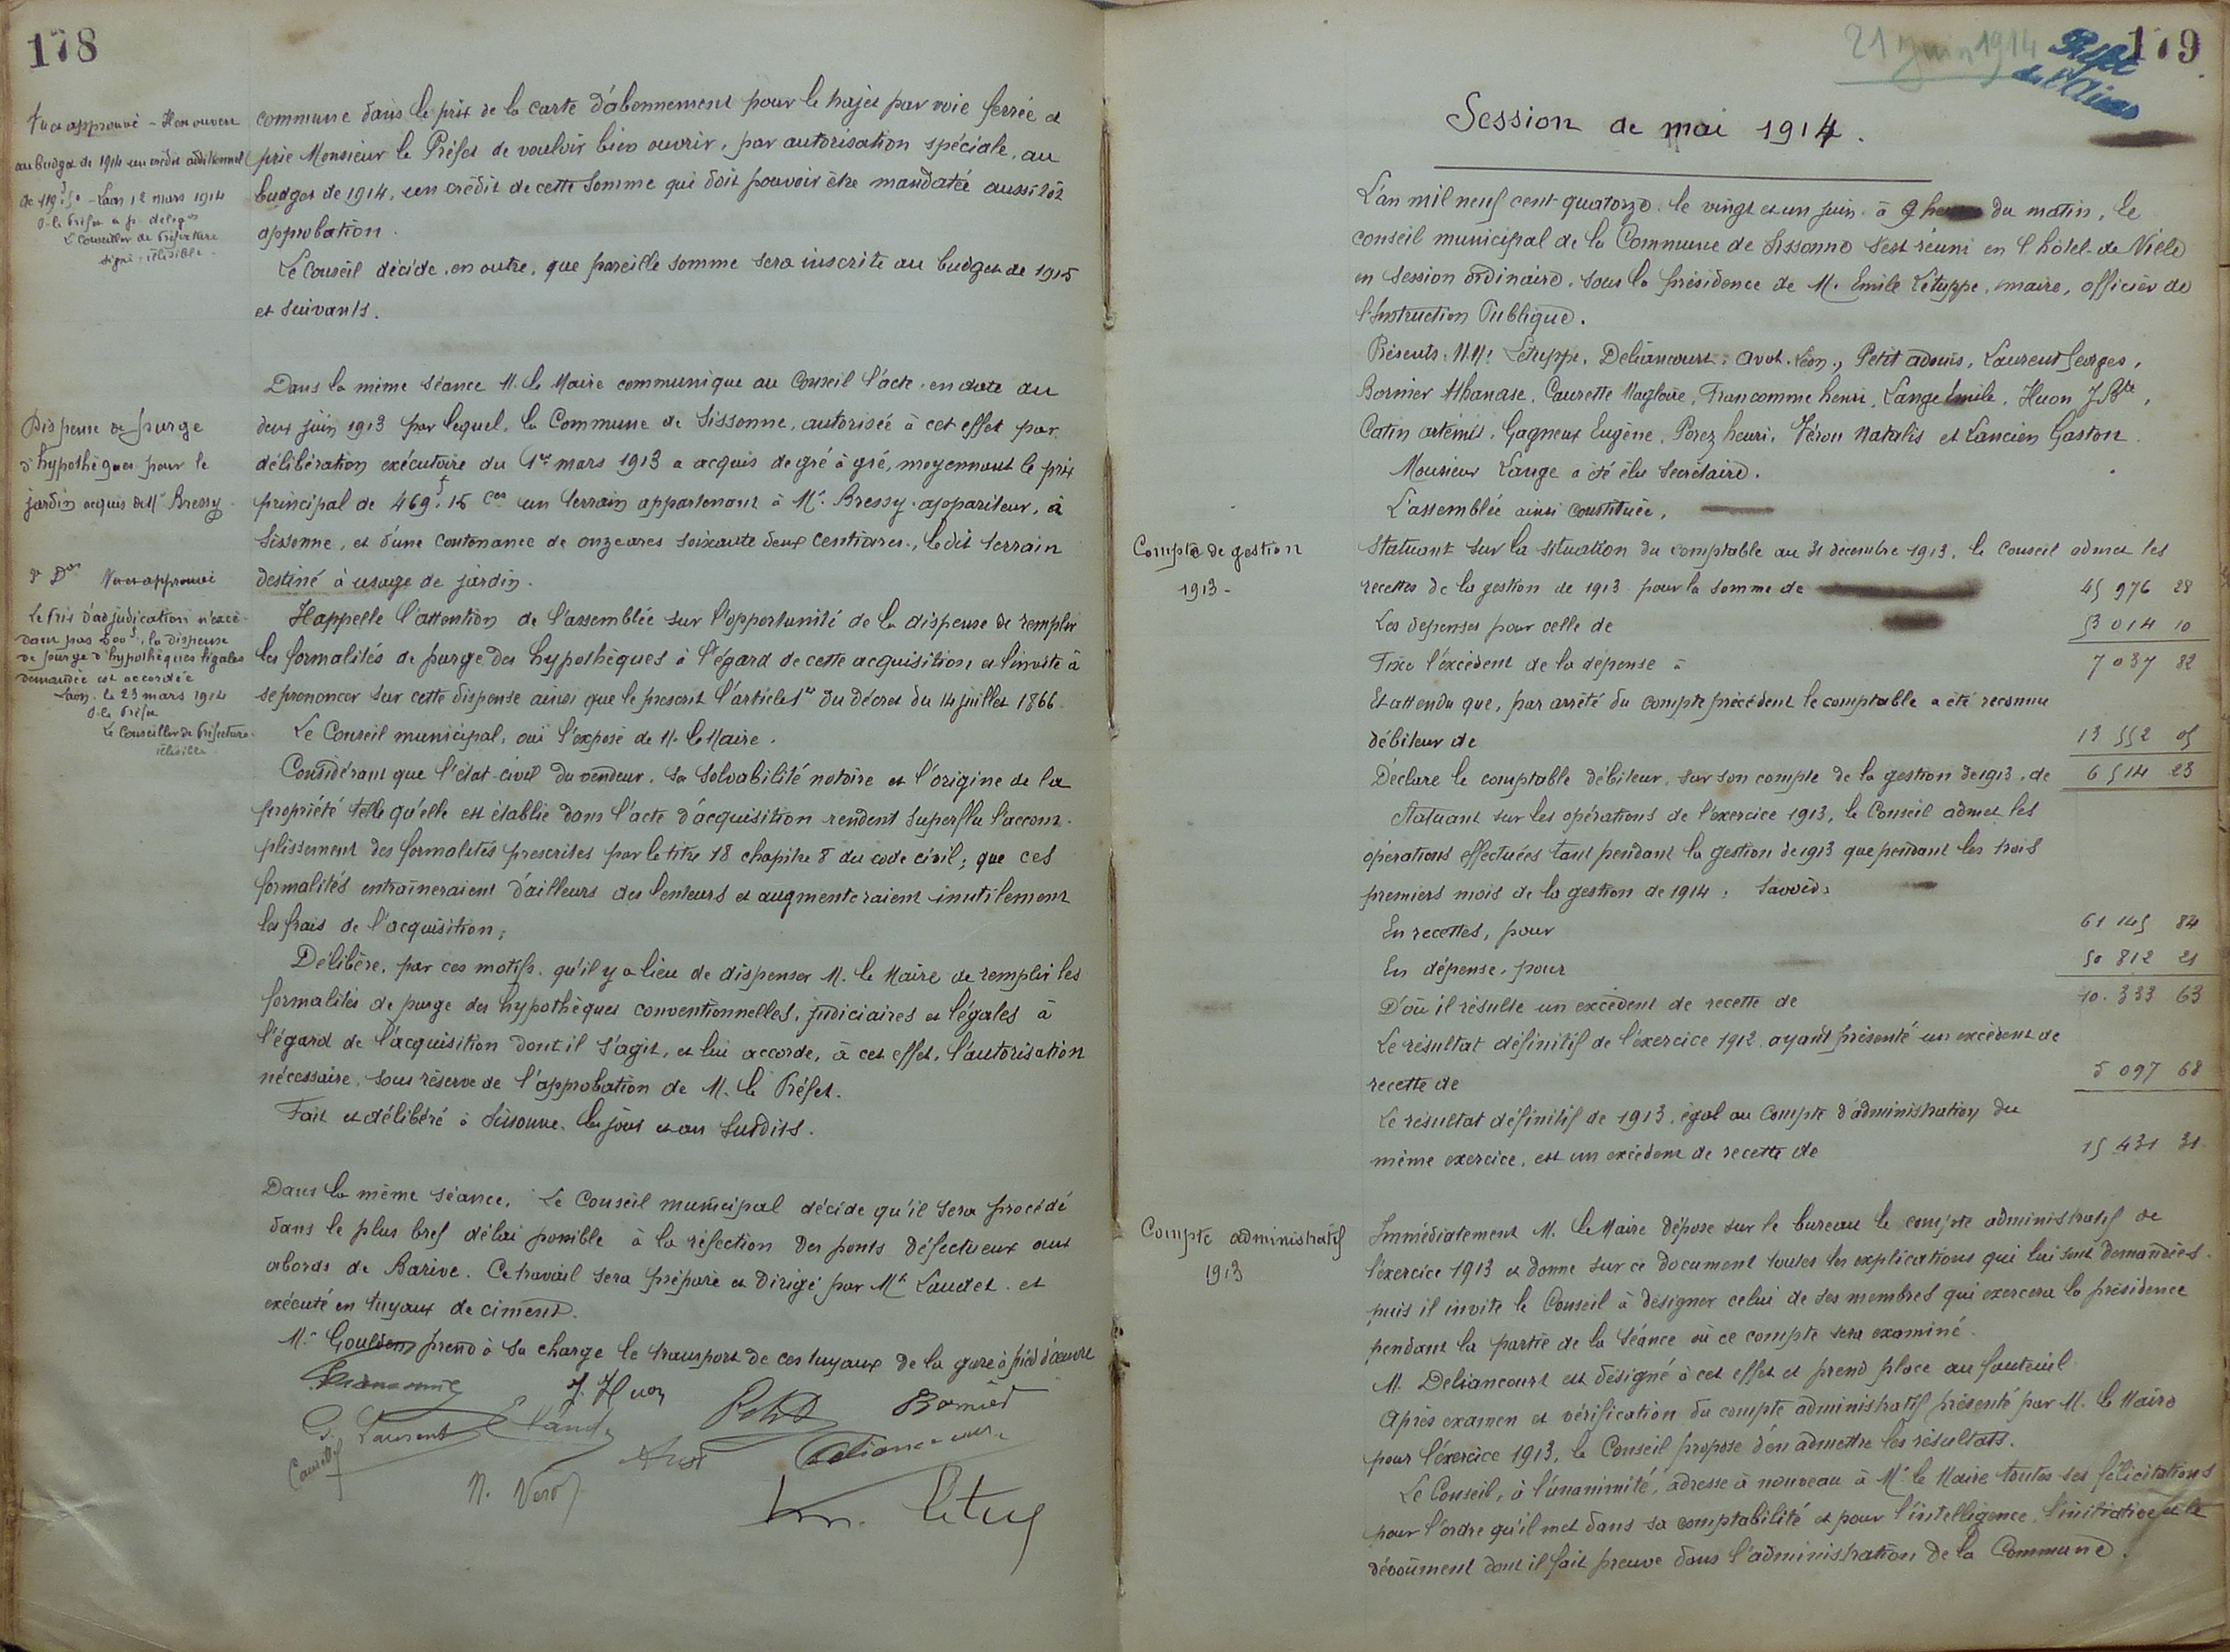 178
Vu et approuvé - Il est ouvert
au budget de 1914 un crédit additionnel
de 119f50 - Laon 12 mars 1914
P. le Préfet et p. délégon
Le Conseiller de Préfecture
signé : illisible
commune dans le prix de la carte d'abonnement pour le trajet par voie ferrée et
prie Monsieur le Préfet de vouloir bien ouvrir, par autorisation spéciale, au
budget de 1914, un crédit de cette somme qui doit pouvoir être mandatée aussitôt
approbation.
Le Conseil décide, en outre, que pareille somme sera inscrite au budget de 1915
et suivants.
Dispense de purge
d'hypothèques pour le
jardin acquis de Mr Bressy
Don Vu et approuvé
Le prix d'adjudication n'excé-
dant pas 500f, la dispense
de purge d'hypothèques légales
demandée est accordée
Laon, le 23 mars 1914
P. le Préfet
Le Conseiller de Préfecture
illisible
Dans la même séance M. le Maire communique au Conseil l'acte en date du
deux juin 1913 par lequel, la Commune de Sissonne, autorisée à cet effet par
délibération exécutoire du 1er mars 1913 a acquis de gré à gré, moyennant le prix
principal de 469f,15 ces un terrain appartenant à Mr. Bressy, appariteur, à
Sissonne, et d'une contenance de onze ares soixante deux centiares, le dit terrain
destiné à usage de jardin.
Il appelle l'attention de l'assemblée sur l'opportunité de la dispense de remplir
les formalités de purge des hypothèques à l'égard de cette acquisition et l'invite à
se prononcer sur cette dispense ainsi que le prescrit l'article 1er du décret du 14 juillet 1866.
Le Conseil municipal, ouï l'exposé de M. le Maire.
Considérant que l'état-civil du vendeur, sa solvabilité notoire et l'origine de la
propriété telle qu'elle est établie dans l'acte d'acquisition rendent superflu l'accom-
plissement des formalités prescrites par le titre 18 chapitre 8 du code civil ; que ces
formalités entraîneraient d'ailleurs des lenteurs et augmenteraient inutilement
les frais de l'acquisition ;
Délibère, par ces motifs, qu'il y a lieu de dispenser M. le Maire de remplir les
formalités de purge des hypothèques conventionnelles, judiciaires et légales à
l'égard de l'acquisition dont il s'agit, et lui accorde, à cet effet, l'autorisation
nécessaire, sous réserve de l'approbation de M. le Préfet.
Fait et délibéré à Sissonne, les jour et an susdits.
Dans la même séance, Le Conseil municipal décide qu'il sera procédé
dans le plus bref délai possible à la réfection des ponts défectueux aux
abords de Barive. Ce travail sera préparé et dirigé par Mr Laudet et
exécuté en tuyaux de ciment.
Mr Goulden prend à sa charge le transport de ces tuyaux de la gare à pied d'oeuvre
J. Huon
Petit
Bornier
G. Laurent
Caurette
Avot
Deliancourt
N. Véron
179
21 Juin 1914
Préfet
de l'Aisne
Session de mai 1914.
L'an mil neuf cent quatorze, le vingt et un juin, à 9 heures du matin, le
conseil municipal de la Commune de Sissonne s'est réuni en l'hôtel-de-Ville
en session ordinaire, sous la présidence de M. Emile Létuppe, maire, officier de
l'Instruction Publique.
Présents : M.M. Létuppe, Deliancourt, Avot Léon, Petit adonis, Laurent Georges,
Bornier Athanase, Caurette Magloire, Francomme henri, Lange Emile, Huon J. Bte,
Catin artémis, Gagneux Eugène, Porez henri, Véron Natalis et Lancien Gaston.
Monsieur Lange a été élu secrétaire.
L'assemblée ainsi constituée,
Compte de gestion
1913 -
Statuant sur la situation du comptable au 31 décembre 1913, le Conseil admet les
recettes de la gestion de 1913 pour la somme de 45 976 28
Les dépenses pour celle de 53 014 10
Fixe l'excédent de la dépense à 7 037 82
Et attendu que, par arrêté du compte précédent le comptable a été reconnu
débiteur de 13 552 05
Déclare le comptable débiteur, sur son compte de la gestion de 1913, de 6 514 23
Statuant sur les opérations de l'exercice 1913, le Conseil admet les
opérations effectuées tant pendant la gestion de 1913 que pendant les trois
premiers mois de la gestion de 1914 ; savoir :
En recettes, pour 61 145 84
En dépense, pour 50 812 21
D'où il résulte un excédent de recette de 10.333 63
Le résultat définitif de l'exercice 1912 ayant présenté un excédent de
recette de 5 097 68
Le résultat définitif de 1913, égal au compte d'administration du
même exercice, est un excédent de recette de 15 431 31
Compte administratif
1913
Immédiatement M. le Maire dépose sur le bureau le compte administratif de
l'exercice 1913 et donne sur ce document toutes les explications qui lui sont demandées.
puis il invite le Conseil à désigner celui de ses membres qui exercera la présidence
pendant la partie de la séance où ce compte sera examiné.
M. Deliancourt est désigné à cet effet et prend place au fauteuil.
Après examen et vérification du compte administratif présenté par M. le Maire
pour l'exercice 1913, le Conseil propose d'en admettre les résultats.
Le Conseil, à l'unanimité, adresse à nouveau à Mr le Maire toutes ses félicitations
pour l'ordre qu'il met dans sa comptabilité et pour l'intelligence, l'initiative et le
dévoûment dont il fait preuve dans l'administration de la Commune.